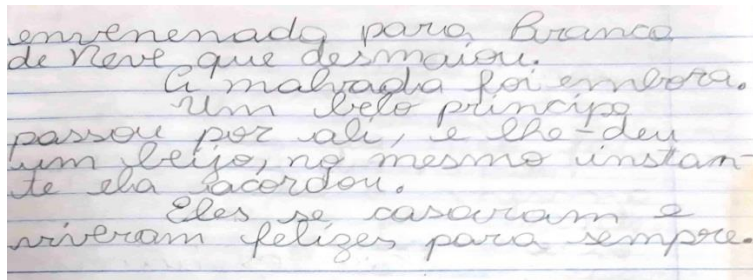 envenenada para Branca
de Neve que desmaiou.
A malvada foi embora.
Um belo príncipe
passou por ali, e lhe-deu
um beijo, no mesmo instan-
te ela acordou.
Eles se casaram e
viveram felizes para sempre.